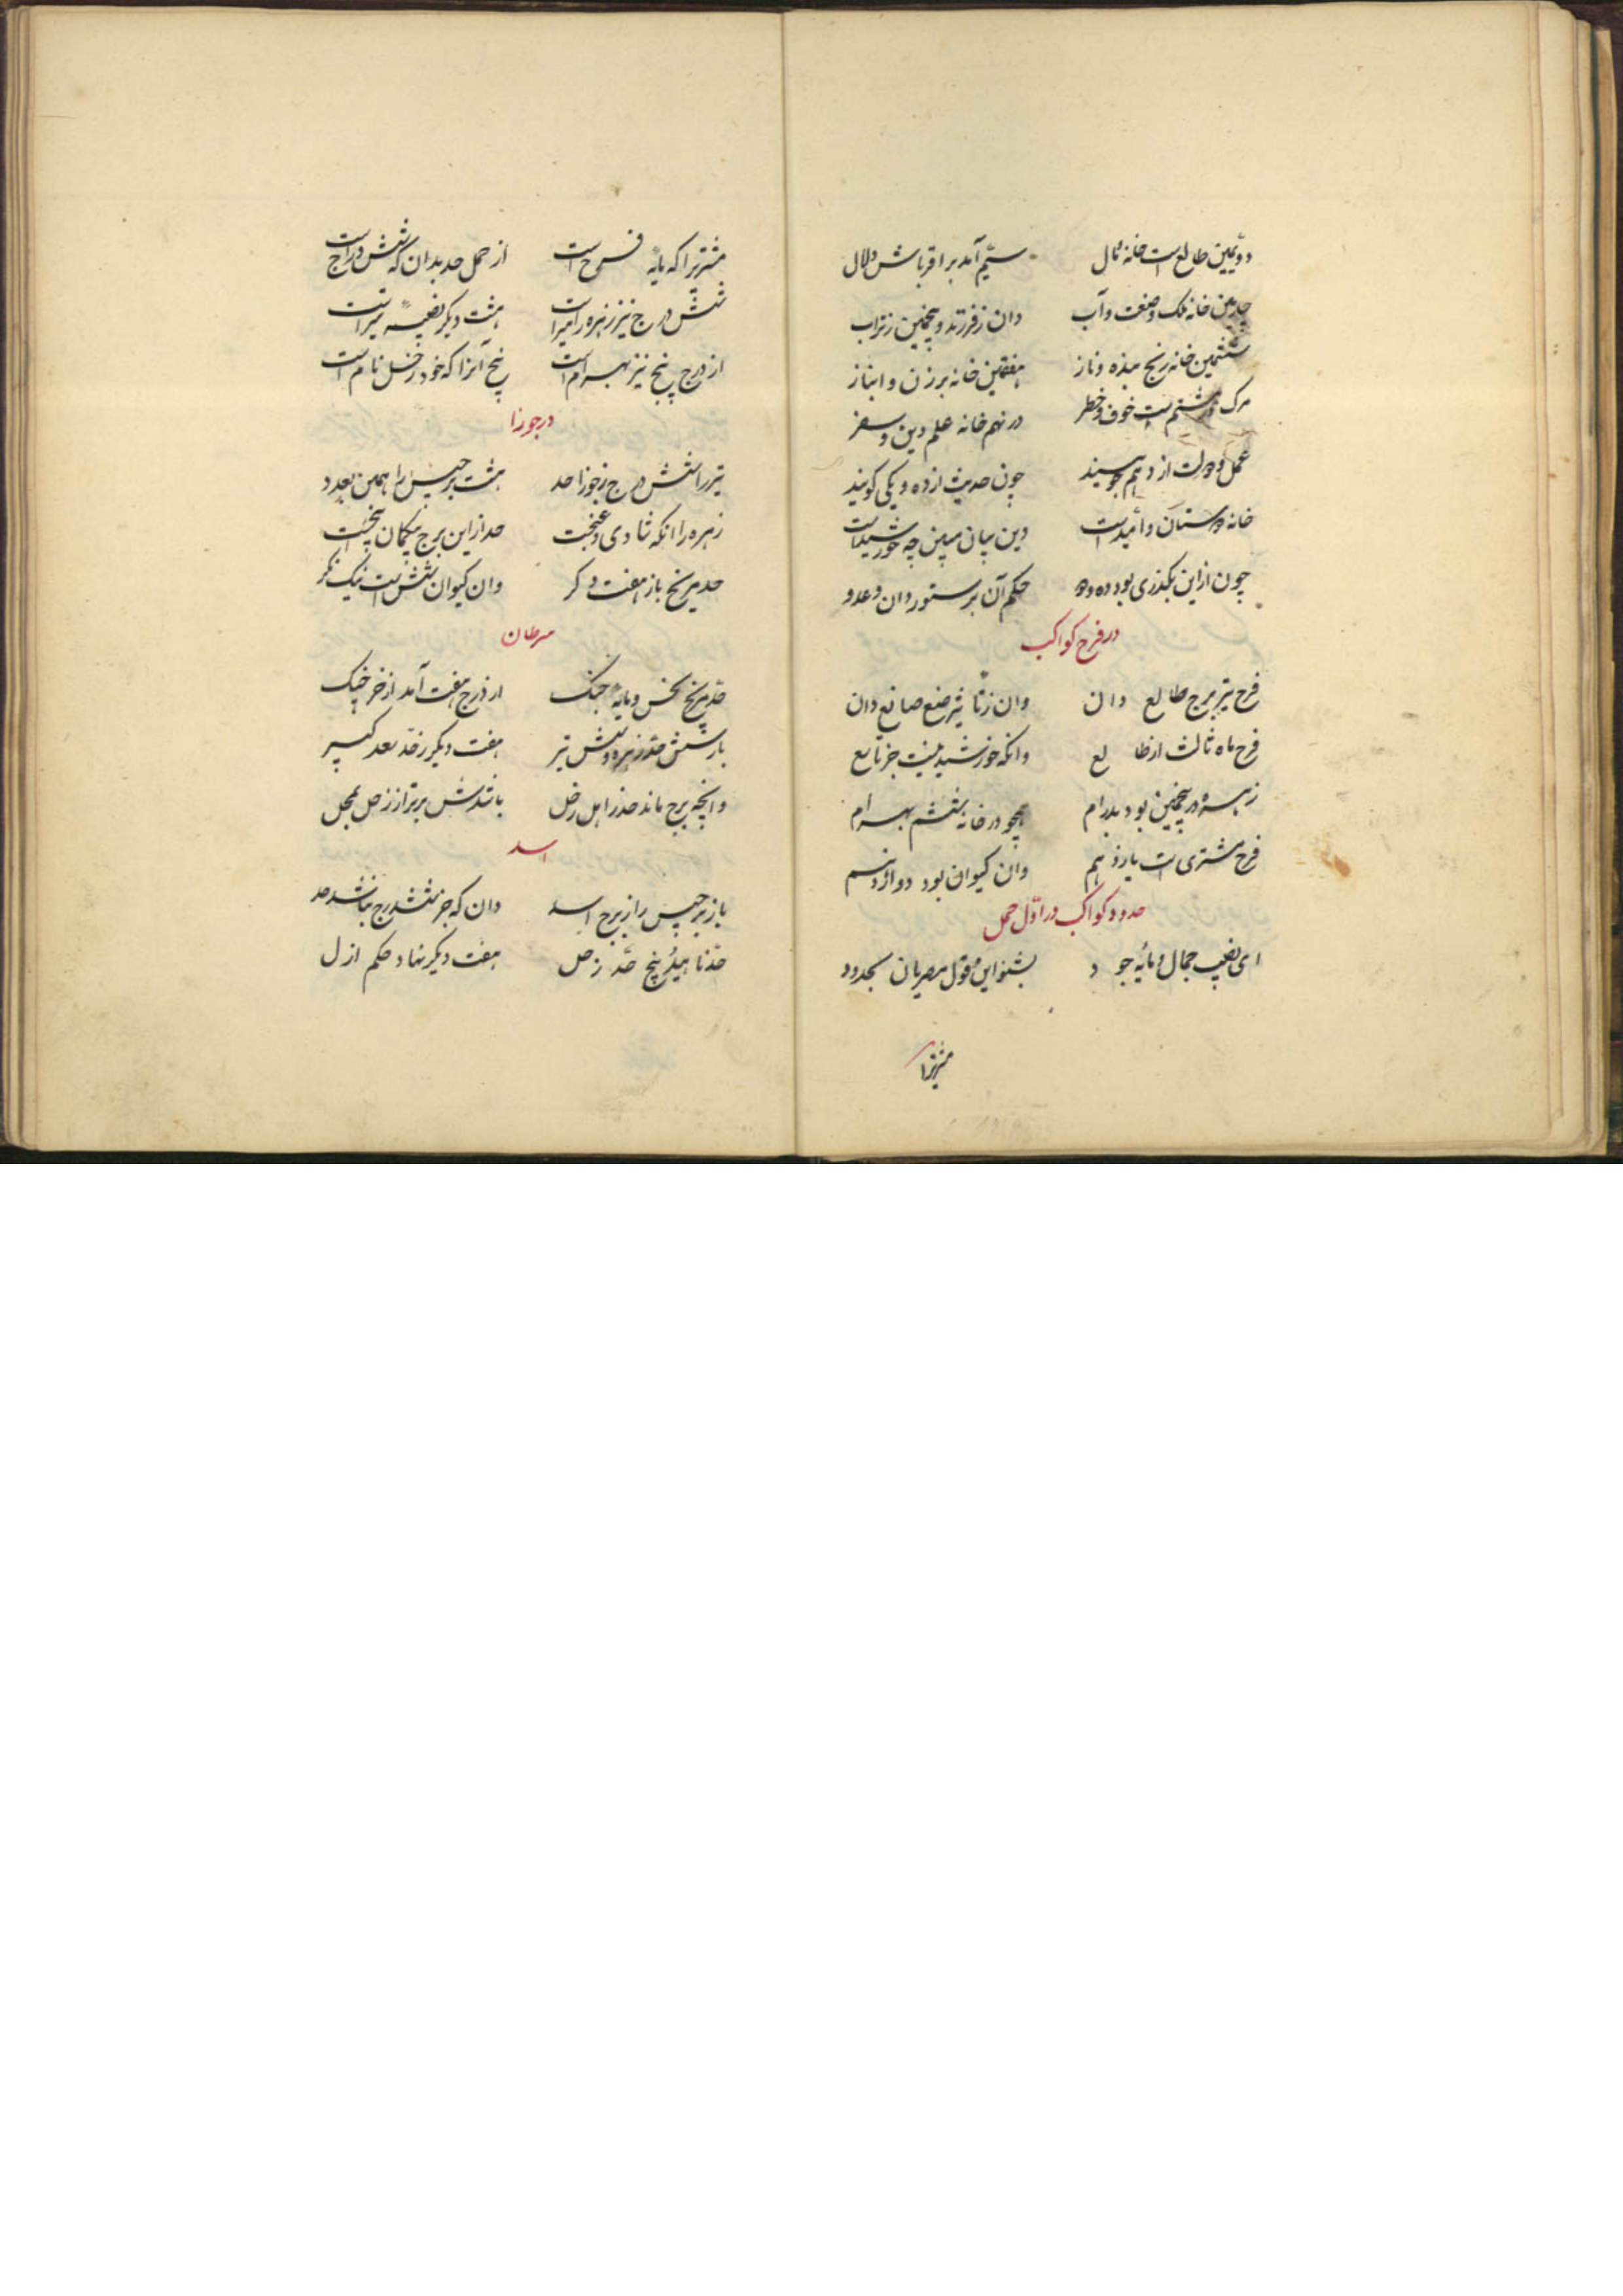 دویمین طالع است خانه مال سیّم آمد بر اقرباش دلال
چارمین خانه ملک و صنعت و آب دان ز فرزند و همچنین ز تراب
ششمین خانه رنج بنده و ناز هفتمین خانه بر زن و انباز
مرک در هشتم است خوف و خطر در نهم خانه علم و دین و سفر
عمل و دولت از دهم جویند چون حدیث از ده و یکی کویند
خانه دوستان و امیدست وین بیان مبین چه خورشیدست
چون ازاین بکذری بود ده و دو حکم آن بر ستور دان و عدو
در فرح کواکب
فرح تیر برج طالع دان وان ز تاثیر صنع صانع دان
فرح ماه ثالث از طالع وانکه خورشید نیست جز تاسع
زهره در پنجمین بود پدرام همچو در خانه ششم بهرام
فرح مشتری است یازدهم وان کیوان بود دوازدهم
حدود کواکب در اول حمل
ای نصیب جمال و مایه جود بشنو این قول مصریان بحدود
مشتریرا
مشتریرا که مایه فرح است از حمل حد بدان که شش درج است
شش درج نیز زهره را میراست هشت دیکر نصیبه تیر است
از درج پنج نیز بهرام است پنج آنرا که خود زحل نام است
در جوزا
تیر را شش درج ز جوزا حد هشت برجیس را همین بعدد
زهره را انکه شادی و غنجست حد ازاین برج بیکمان پنجست
حد مریخ باز هفت دکر وان کیوان شش است نیک نکر
سرطان
حد مریخ نحس و مایه جنک از درج هفت آمد از خرچنک
باز شش حد زهره و شش تیر هفت دیکر ز حد سعد کبیر
وانچه برج ماند حذر اهل زحل باشدش برتر از زحل بمحل
اسد
باز برجیس را ز برج اسد دان که جز شش درج نباشد حد
حد ناهید پنج حد زحل هفت دیکر نهاد حکم ازل